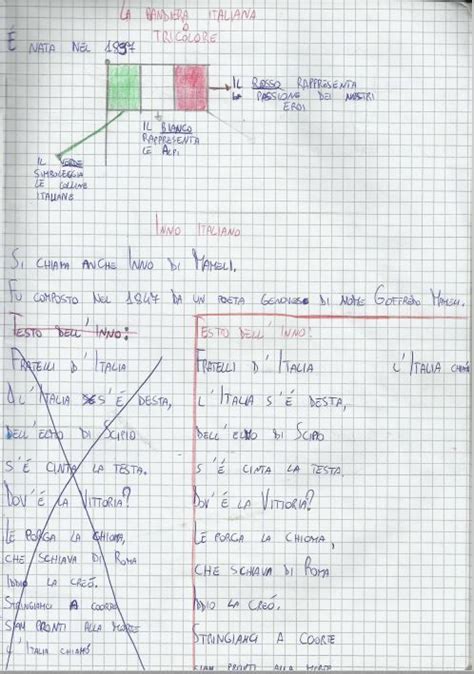 LA BANDIERA ITALIANA
O
TRICOLORE
É NATA NEL 1897
IL ROSSO RAPPRESENTA
LA PASSIONE DEI NOSTRI
EROI
IL BIANCO
RAPPRESENTA
LE ALPI
IL VERDE
SIMBOLEGGIA
LE COLLINE
ITALIANE
INNO ITALIANO
SI CHIAMA ANCHE INNO DI MAMELI.
FU COMPOSTO NEL 1847 DA UN POETA GENOVESE DI NOME GOFFREDO MAMELI.
TESTO DELL'INNO:
FRATELLI D'ITALIA
L'ITALIA S'É DESTA,
DELL'ELMO DI SCIPIO
S'É CINTA LA TESTA.
DOV'É LA VITTORIA?
LE PORGA LA CHIOMA,
CHE SCHIAVA DI ROMA
IDDIO LA CREÓ.
STRINGIAMCI A COORTE
SIAM PRONTI ALLA MORTE
L'ITALIA CHIAMÓ
TESTO DELL'INNO:
FRATELLI D'ITALIA
L'ITALIA S'É DESTA,
DELL'ELMO DI SCIPIO
S'É CINTA LA TESTA.
DOV'É LA VITTORIA?
LE PORGA LA CHIOMA,
CHE SCHIAVA DI ROMA
IDDIO LA CREÓ.
STRINGIAMCI A COORTE
SIAM PRONTI ALLA MORTE
L'ITALIA CHIAMÓ